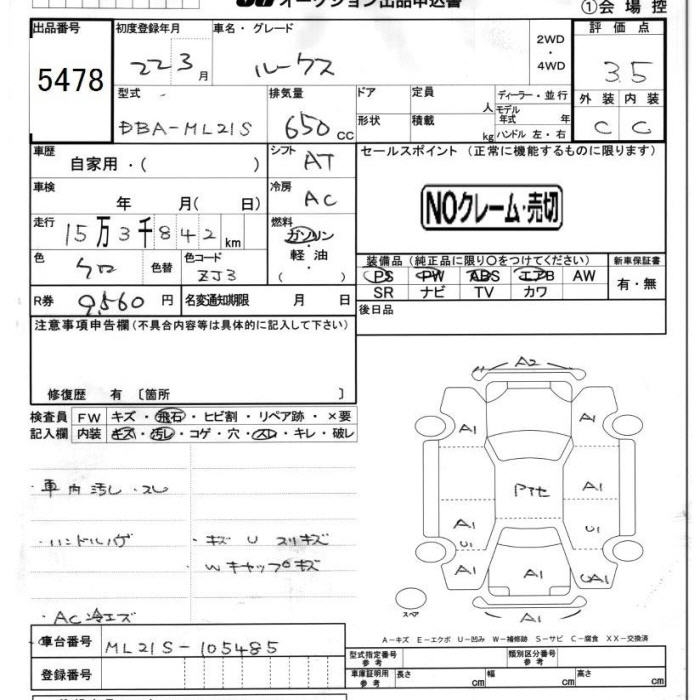 オークション出品申込書 ①会場控
出品番号 初度登録年月 車名・グレード 2WD・4WD 評価点
5478 22 3月 ルークス 3.5
型式 排気量 ドア 定員 人 ディーラー・並行 外装 内装
DBA-ML21S 650cc 形状 積載 kg モデル年式 年 ハンドル 左・右 C C
車歴 自家用・( ) シフト AT セールスポイント (正常に機能するものに限ります)
車検 年 月( 日) 冷房 AC
NOクレーム・売切
走行 15万3千842km 燃料 ガソリン・軽油・( )
色 クロ 色替 色コード ZJ3
装備品(純正品に限り○をつけてください) 新車保証書
PS PW ABS エアB AW 有・無
SR ナビ TV カワ
R券 9,560円 名変通知期限 月 日 後日品
注意事項申告欄(不具合内容等は具体的に記入して下さい)
修復歴 有 〔箇所 〕
検査員 FW キズ・飛石・ヒビ割・リペア跡・×要
記入欄 内装 キズ・汚レ・コゲ・穴・スレ・キレ・破レ
・車内汚レ・スレ
・ハンドルハゲ ・キズ U スリキズ
Wキャップキズ
・AC冷エズ
A2
A1 A1
Pтセ A1
A1 U1 U1
A1 A1 UA1
A1
スペア
A-キズ E-エクボ U-凹み W-補修跡 S-サビ C-腐食 XX-交換済
車台番号 ML21S-105485
型式指定番号 参考 類別区分番号 参考
登録番号
車庫証明用 参考 長さ cm 幅 cm 高さ cm